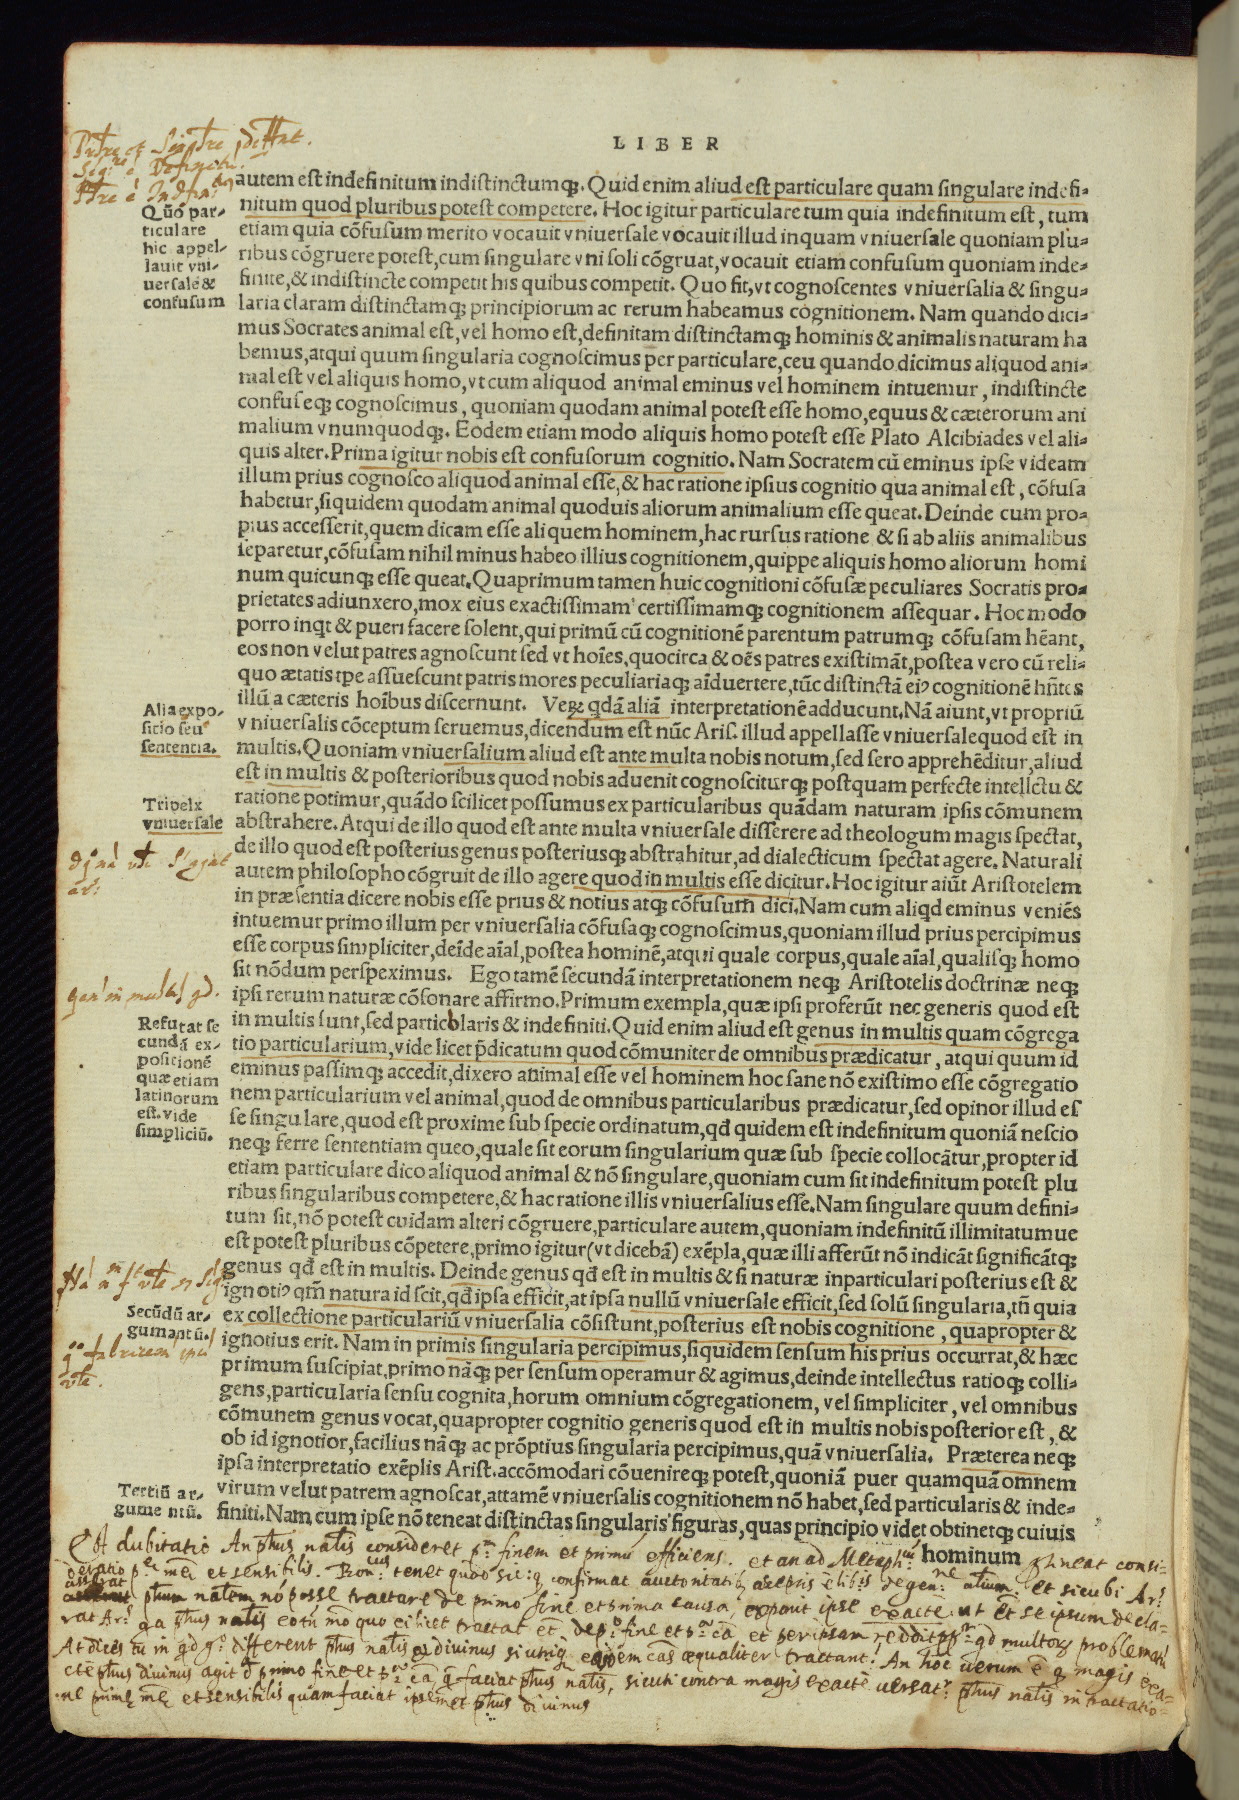 LIBER
autem est indefinitum indistinctumq;. Quid enim aliud est particulare quam singulare indefi-
nitum quod pluribus potest competere. Hoc igitur particulare tum quia indefinitum est, tum
etiam quia cõfusum merito vocauit vniuersale vocauit illud inquam vniuersale quoniam plu-
ribus cõgruere potest, cum singulare vni soli cõgruat, vocauit etiam confusum quoniam inde-
finite, & indistincte competit his quibus competit. Quo fit, vt cognoscentes vniuersalia & singu-
laria claram distinctamq; principiorum ac rerum habeamus cognitionem. Nam quando dici-
mus Socrates animal est, vel homo est, definitam distinctamq; hominis & animalis naturam ha
bemus, atqui quum singularia cognoscimus per particulare, ceu quando dicimus aliquod ani-
mal est vel aliquis homo, vt cum aliquod animal eminus vel hominem intuemur, indistincte
confuseq; cognoscimus, quoniam quodam animal potest esse homo, equus & cæterorum ani
malium vnumquodq;. Eodem etiam modo aliquis homo potest esse Plato Alcibiades vel ali-
quis alter. Prima igitur nobis est confusorum cognitio. Nam Socratem cũ eminus ipse videam
illum prius cognosco aliquod animal esse, & hac ratione ipsius cognitio qua animal est, cõfusa
habetur, siquidem quodam animal quoduis aliorum animalium esse queat. Deinde cum pro-
pius accesserit, quem dicam esse aliquem hominem, hac rursus ratione & si ab aliis animalibus
separetur, cõfusam nihil minus habeo illius cognitionem, quippe aliquis homo aliorum homi
num quicunq; esse queat. Quaprimum tamen huic cognitioni cõfusæ peculiares Socratis pro-
prietates adiunxero, mox eius exactissimam certissimamq; cognitionem assequar. Hoc modo
porro inqt & pueri facere solent, qui primũ cũ cognitionẽ parentum patrumq; cõfusam hẽant,
eos non velut patres agnoscunt sed vt hoĩes, quocirca & oẽs patres existimãt, postea vero cũ reli-
quo ætatis tpe assuescunt patris mores peculiariaq; aĩduertere, tũc distinctã eiꝰ cognitionẽ hñtes
illũ a cæteris hoĩbus discernunt. Veꝝ qdã aliã interpretationẽ adducunt. Nã aiunt, vt propriũ
vniuersalis cõceptum seruemus, dicendum est nũc Aris. illud appellasse vniuersale quod est in
multis. Quoniam vniuersalium aliud est ante multa nobis notum, sed sero apprehẽditur, aliud
est in multis & posterioribus quod nobis aduenit cognosciturq; postquam perfecte intellctu &
ratione potimur, quãdo scilicet possumus ex particularibus quãdam naturam ipsis cõmunem
abstrahere. Atqui de illo quod est ante multa vniuersale disserere ad theologum magis spectat,
de illo quod est posterius genus posteriusq; abstrahitur, ad dialecticum spectat agere. Naturali
autem philosopho cõgruit de illo agere quod in multis esse dicitur. Hoc igitur aiũt Aristotelem
in præsentia dicere nobis esse prius & notius atq; cõfusum dici. Nam cum aliqd eminus veniẽs
intuemur primo illum per vniuersalia cõfusaq; cognoscimus, quoniam illud prius percipimus
esse corpus simpliciter, deĩde aĩal, postea hominẽ, atqui quale corpus, quale aĩal, qualisq; homo
sit nõdum perspeximus. Ego tamẽ secundã interpretationem neq; Aristotelis doctrinæ neq;
ipsi rerum naturæ cõsonare affirmo. Primum exempla, quæ ipsi proferũt nec generis quod est
in multis sunt, sed particolaris & indefiniti. Quid enim aliud est genus in multis quam cõgrega
tio particularium, videlicet p̃dicatum quod cõmuniter de omnibus prædicatur, atqui quum id
eminus passimq; accedit, dixero animal esse vel hominem hoc sane nõ existimo esse cõgregatio
nem particularium vel animal, quod de omnibus particularibus prædicatur, sed opinor illud es
se singulare, quod est proxime sub specie ordinatum, qđ quidem est indefinitum quoniã nescio
neq; ferre sententiam queo, quale sit eorum singularium quæ sub specie collocãtur, propter id
etiam particulare dico aliquod animal & nõ singulare, quoniam cum sit indefinitum potest plu
ribus singularibus competere, & hac ratione illis vniuersalius esse. Nam singulare quum defini-
tum sit, nõ potest cuidam alteri cõgruere, particulare autem, quoniam indefinitũ illimitatumue
est potest pluribus cõpetere, primo igitur (vt dicebã) exẽpla, quæ illi afferũt nõ indicãt significãtq;
genus qđ est in multis. Deinde genus qđ est in multis & si naturæ inparticulari posterius est &
ignotiꝰ qm̃ natura id scit, qđ ipsa efficit, at ipsa nullũ vniuersale efficit, sed solũ singularia, tñ quia
ex collectione particulariũ vniuersalia cõsistunt, posterius est nobis cognitione, quapropter &
ignotius erit. Nam in primis singularia percipimus, siquidem sensum his prius occurrat, & hæc
primum suscipiat, primo nãq; per sensum operamur & agimus, deinde intellectus ratioq; colli-
gens, particularia sensu cognita, horum omnium cõgregationem, vel simpliciter, vel omnibus
cõmunem genus vocat, quapropter cognitio generis quod est in multis nobis posterior est, &
ob id ignotior, facilius nãq; ac prõptius singularia percipimus, quã vniuersalia. Præterea neq;
ipsa interpretatio exẽplis Arist. accõmodari cõuenireq; potest, quoniã puer quamquã omnem
virum velut patrem agnoscat, attamẽ vniuersalis cognitionem nõ habet, sed particularis & inde-
finiti. Nam cum ipse nõ teneat distinctas singularis figuras, quas principio videt obtinetq; cuiuis
hominum
Quõ par-
ticulare
hic appel-
lauit vni-
uersale &
confusum
Alia expo-
sitio seu
sententia.
Tripelx
vniuersale
Refutat se
cundã ex-
positionẽ
quæ etiam
latinorum
est. vide
simpliciũ.
Secũdũ ar-
gumãntũ.
Tertiũ ar-
gume ntũ.